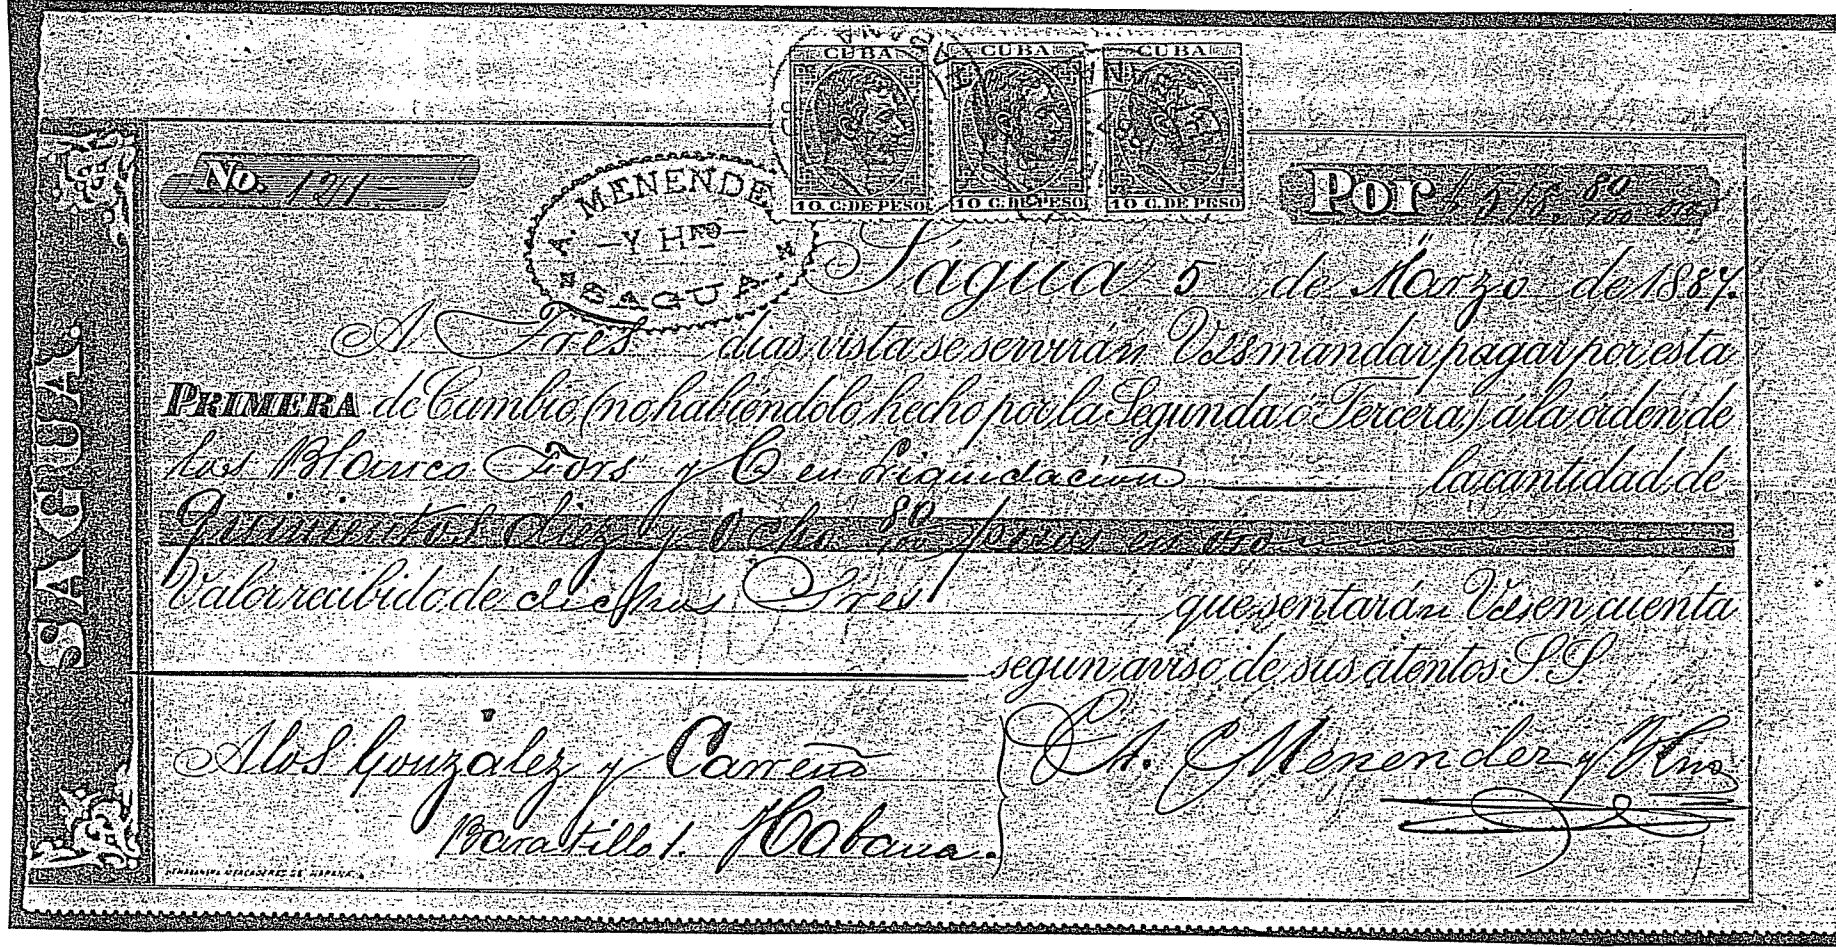 CUBA CUBA CUBA
10 C. DE PESO 10 C. DE PESO 10 C. DE PESO
No. 121
A. MENENDEZ
Y HNO
SAGUA
Por $ 518 80/100 oro
Ságua 5 de Marzo de 1887.
A Tres dias vista se servirán Vds mandar pagar por esta
PRIMERA de Cambio (no habiendolo hecho por la Segunda ó Tercera) á la orden de
los Blanco Fors y C en Liquidación la cantidad de
Quinientos diez y ocho 80 pesos en oro
Valor recibido de dichos Sres que sentarán Vds en cuenta
segun aviso de sus atentos S S
A los González y Carreño
Baratillo 1. Habana.
A. Menendez y Hno
SAGUA.